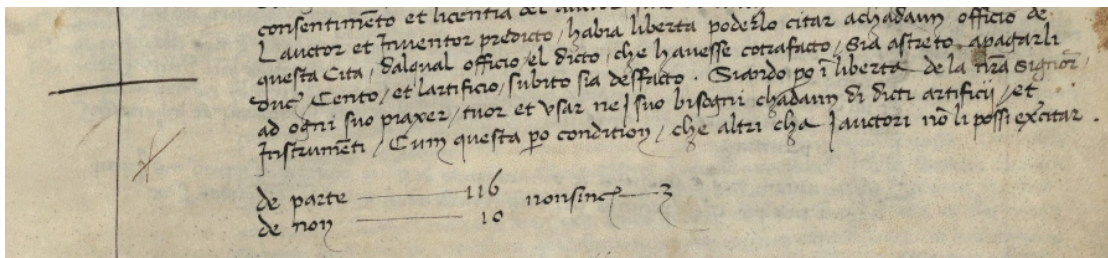 consentimēto et licentia del auctor
L auctor et Inventor predicto / habia liberta poderlo citar achadaun officio de
questa Cita / dalqual officio / el dicto / che havesse cōtrafacto / sia astreto apagarli
duc̄ / Cento / et lartificio / subito sia desfacto . Siando pō ī liberta de la nrā Signor̄ /
ad ogni suo piaxer / tuor et usar nej suo bisogni chadaun di dicti artificij / et
Instrumēti / Cum questa pō condition / che altri cha J auctori nō li possi exercitar .
de parte 116 nonsinc̄ 3
de non 10